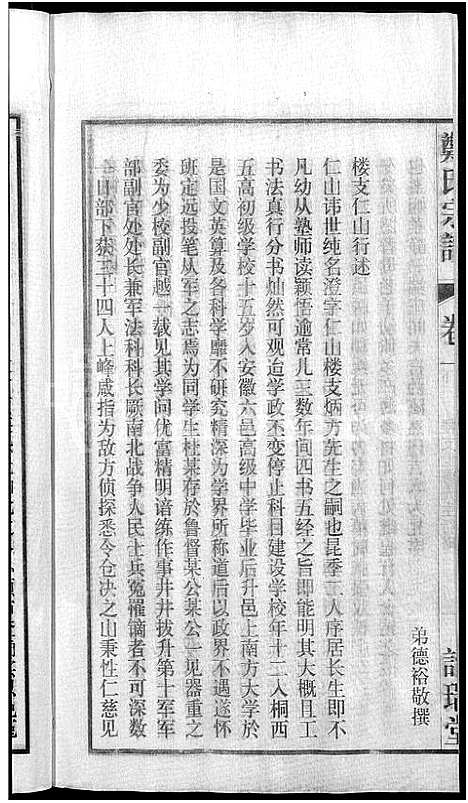 鄭氏宗譜
卷一
詩瑞堂
弟德裕敬撰
楼支仁山行述
仁山讳世纯名澄字仁山楼支炳方先生之嗣也昆季二人序居长生即不
凡幼从塾师读颖悟逾常儿三数年间四书五经之旨即能明其大概且工
书法真行分书灿然可观迨学政不变停止科目建设学校年十二入桐西
五高初级学校十五岁入安徽六邑高级中学毕业后升邑上南方大学於
是国文英算及各科学靡不研究精深为学界所称道后以政界不遇遂怀
班定远投笔从军之志焉为同学生杜某存於鲁督某公某公一见器重之
委为少校副官越一载见其学问优富精明谙练作事井井拔升第十军军
部副官处处长兼军法科科长厥南北战争人民士兵冤罹镝者不可深数
冬山部下柒三十四人上峰咸指为敌方侦探悉令仓决之山秉性仁慈见